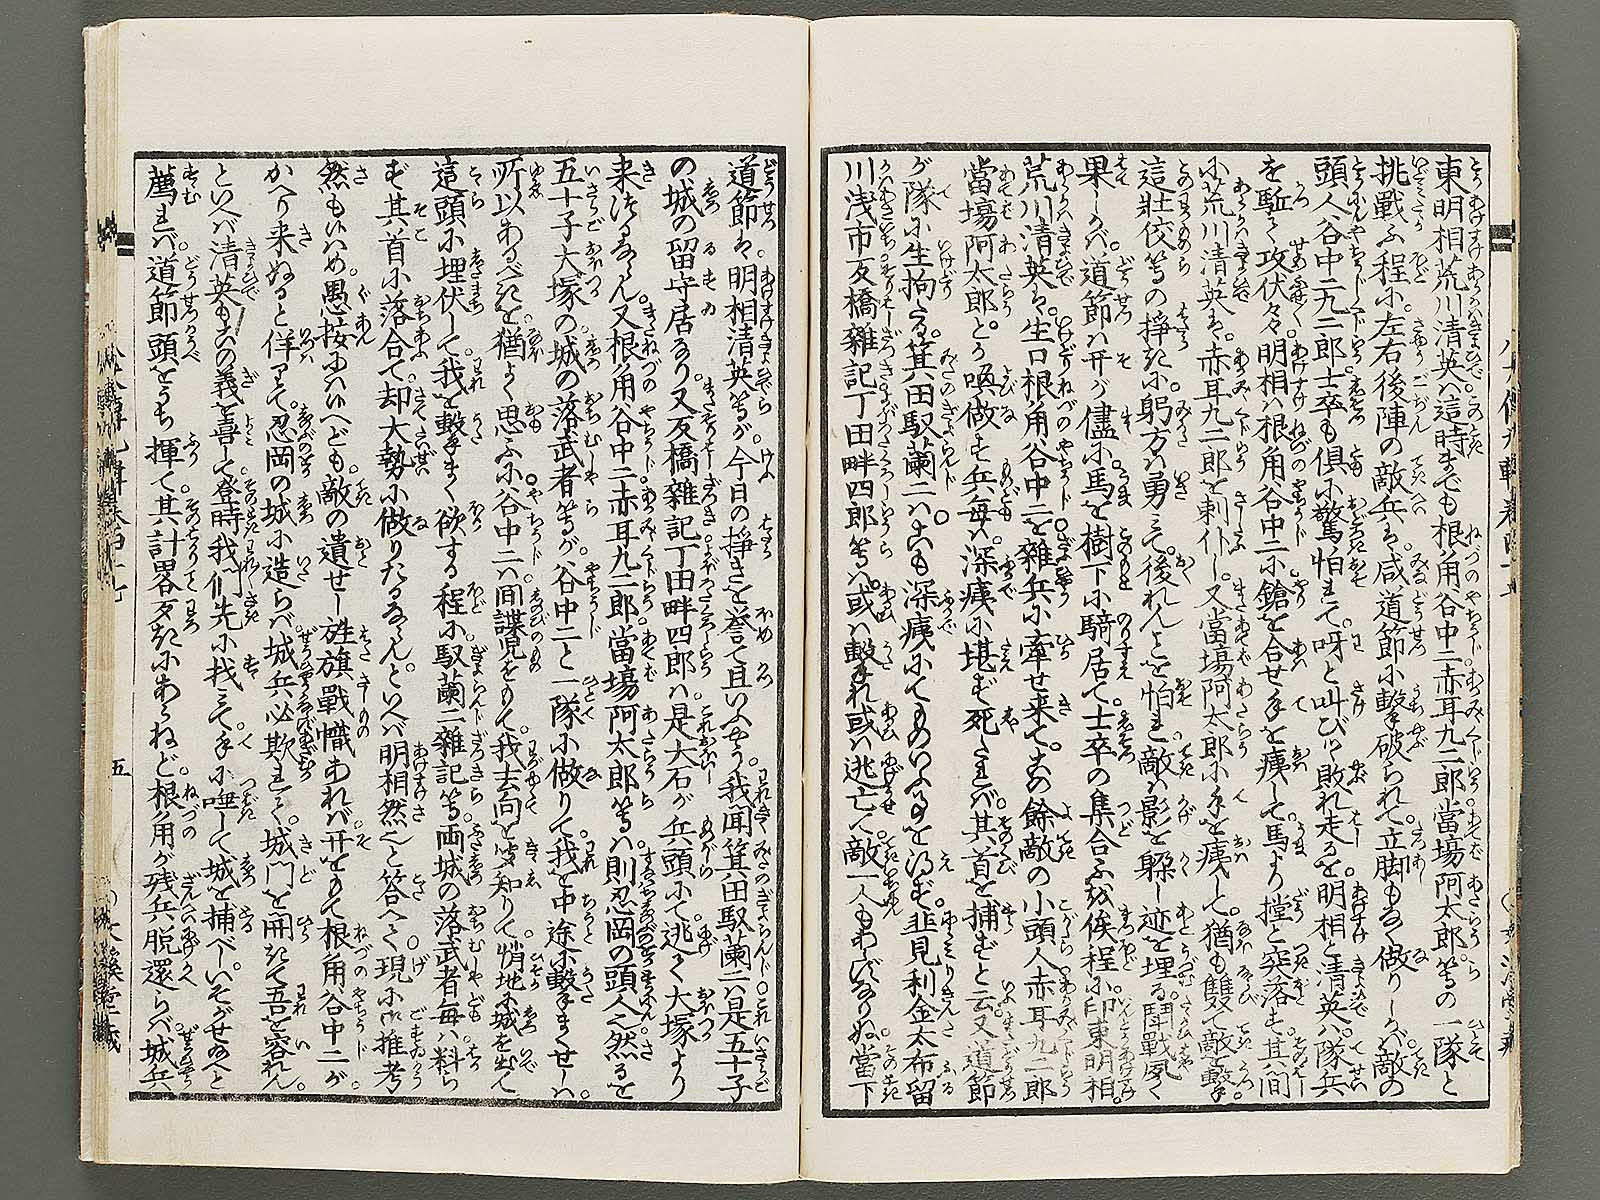 東明相荒川清英ハ這時までも根角谷中二赤耳九二郎當場阿太郎等の一隊と
挑戰ふ程に左右後陣の敵兵は咸道節に擊破られて立脚もなく做りしかバ敵の
頭人谷中二九二郎士卒も倶に驚怕れて呀と叫びつ敗れ走るを明相と清英ハ隊兵
を駈て攻伏々々明相ハ根角谷中二に鎗を合せ手を痍して馬より摚と突落す其間
に荒川清英は赤耳九二郎を刺仆し又當場阿太郎に手を痍して猶も雙て敵を擊
這壯佼等の挣きに躬方ハ勇て後れんとを怕れ敵ハ影を躱し迹を埋る鬪戰夙く
果しかバ道節ハ开が儘に馬を樹下に騎居て士卒の集合ふを俟程に印東明相
荒川清英は生口根角谷中二を雜兵に牽せ来てその餘敵の小頭人赤耳九二郎
當場阿太郎とか喚做す兵毎ハ深痍に堪ず死たれバ其首を捕ずと云又道節
が隊に生拘る箕田馭蘭二ハこも深痍にてものいふことを得ず韭見利金太布留
川浅市反橋雜記丁田畔四郎等ハ或ハ擊れ或ハ逃亡て敵一人もあらずなりぬ當下
道節は明相清英等が今日の挣きを譽て且いふやう我聞箕田馭蘭二ハ是五十子
の城の留守居なり又反橋雜記丁田畔四郎ハ是大石が兵頭にて逃て大塚より
来つるならん又根角谷中二赤耳九二郎當場阿太郎等ハ則忍岡の頭人へ然るを
五十子大塚の城の落武者等が谷中二と一隊に做りて我を中途に擊まくせしハ
所以あるべきを猶よく思ふに谷中二ハ間諜児をもて我去向を知りて悄地に城を出て
這頭に埋伏して我を擊まく欲する程に馭蘭二雜記等両城の落武者毎ハ料ら
ず其首に落合て却大勢に做りたるならんといへバ明相然なりと答へて現に御推考
然もいはめ愚按にハいへども敵の遺せし旌旗戰幟あれバ开をもて根角谷中二が
かへり来ぬると佯りて忍岡の城に造らバ城兵必欺れて城門を開きて吾を容れん
といへバ清英もその義を喜て登時我們先に找て手に唾して城を捕べしいそがせ給へと
薦れバ道節頭をうち揮て其計畧歹きにあらねど根角が残兵脱還らバ城兵
五